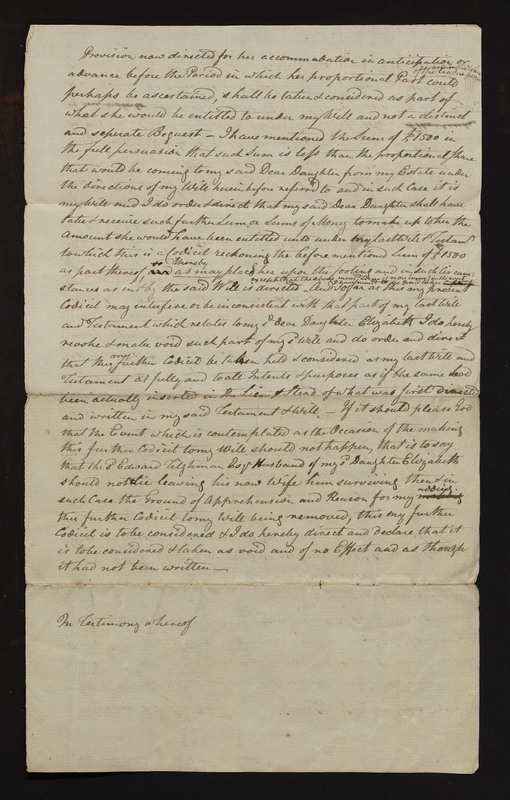 Provision now directed for her accommodation in anticipation or
advance before the Period in which her proportional Part could
perhaps be ascertained, shall be taken & considered as part of
what she would be entitled to under my Will and not a distinct
and seperate Bequest — I have mentioned the Sum of £1500 in
the full persuasion that such Sum is less than the proportional share
that would be coming to my said Dear Daughter from my Estate under
the directions of my Will herein before referred to and in such Case it is
my Will and I do order & direct that my said Dear Daughter shall have
take & receive such further Sum or Sums of Money to make up to her the
Amount she would have been entitled unto under my last Will & Testamt
to which this is a Codicil reckoning the before mentioned Sum of £1500
as part thereof as may place her upon the footing and in such circum-
thereby
stances as in & by the said Will is directed. And so far as this my present
Codicil may interfere or be inconsistent with that part of my last Will
and Testament which relates to my sd dear Daughter Elizabeth I do hereby
revoke & make void such part of my sd Will and do order and direct
that this my further Codicil be taken held & considered as my last Will and
Testament as fully and to all Intents & purposes as if the same had
been actually inserted in the Lieu & Stead of what was first directed
and written in my said Testament & Will — If it should please God
that the Event which is contemplated as the Occasion of the making
this further Codicil to my Will should not happen, that is to say
that the sd Edward Tilghman Esqr Husband of my sd Daughter Elizabeth
should not die leaving his now Wife him surviving then & in
such Case the Ground of Apprehension and Reason for my making
adding
this further Codicil to my Will being removed, this my further
Codicil is to be considered & I do hereby direct and declare that it
is to be considered & taken as void and of no Effect and as though
it had not been written —
In Testimony whereof